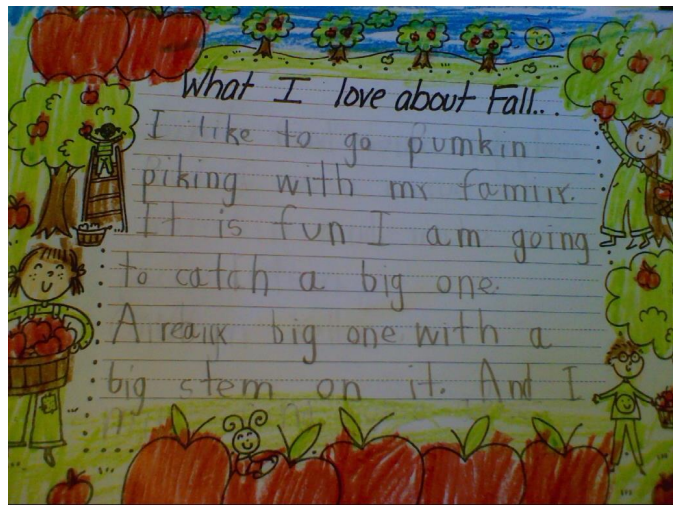 What I love about Fall...
I like to go pumkin
piking with my family.
It is fun I am going
to catch a big one.
A really big one with a
big stem on it. And I